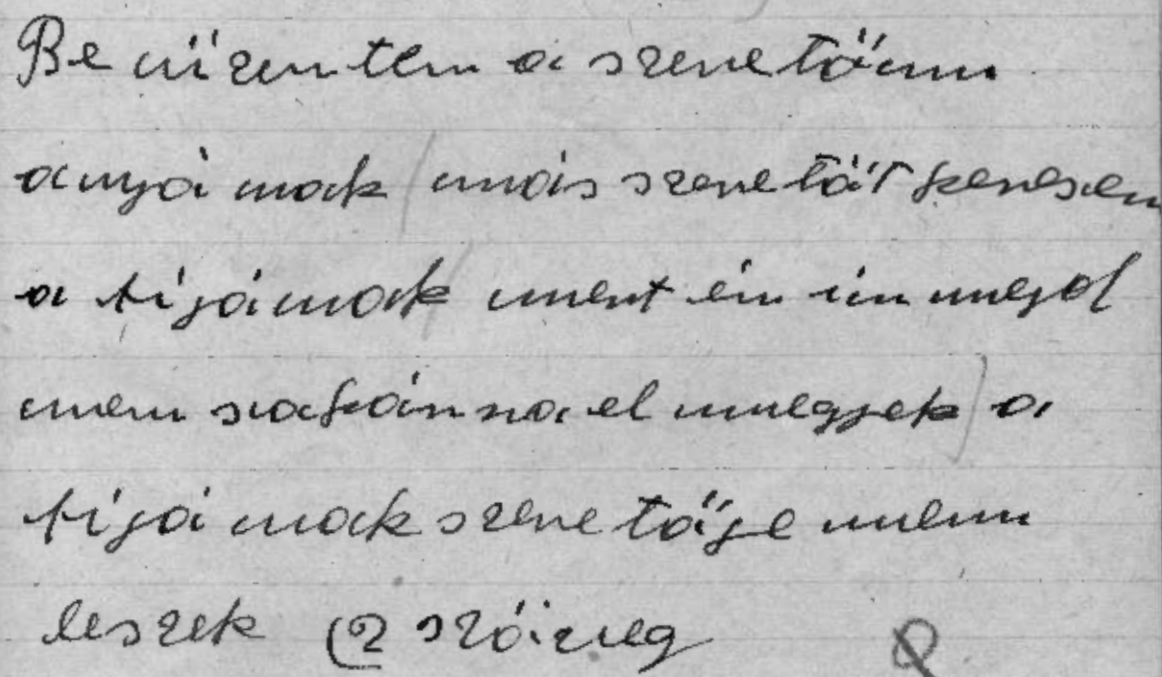 Be üizentem a szeretöm
anyá nak / más szeretöt keresen
a fijának / mert én ien nregol
mem siakán na el mnegyek) a
fijá nak szere töje nem
leszek (2 szóizveg